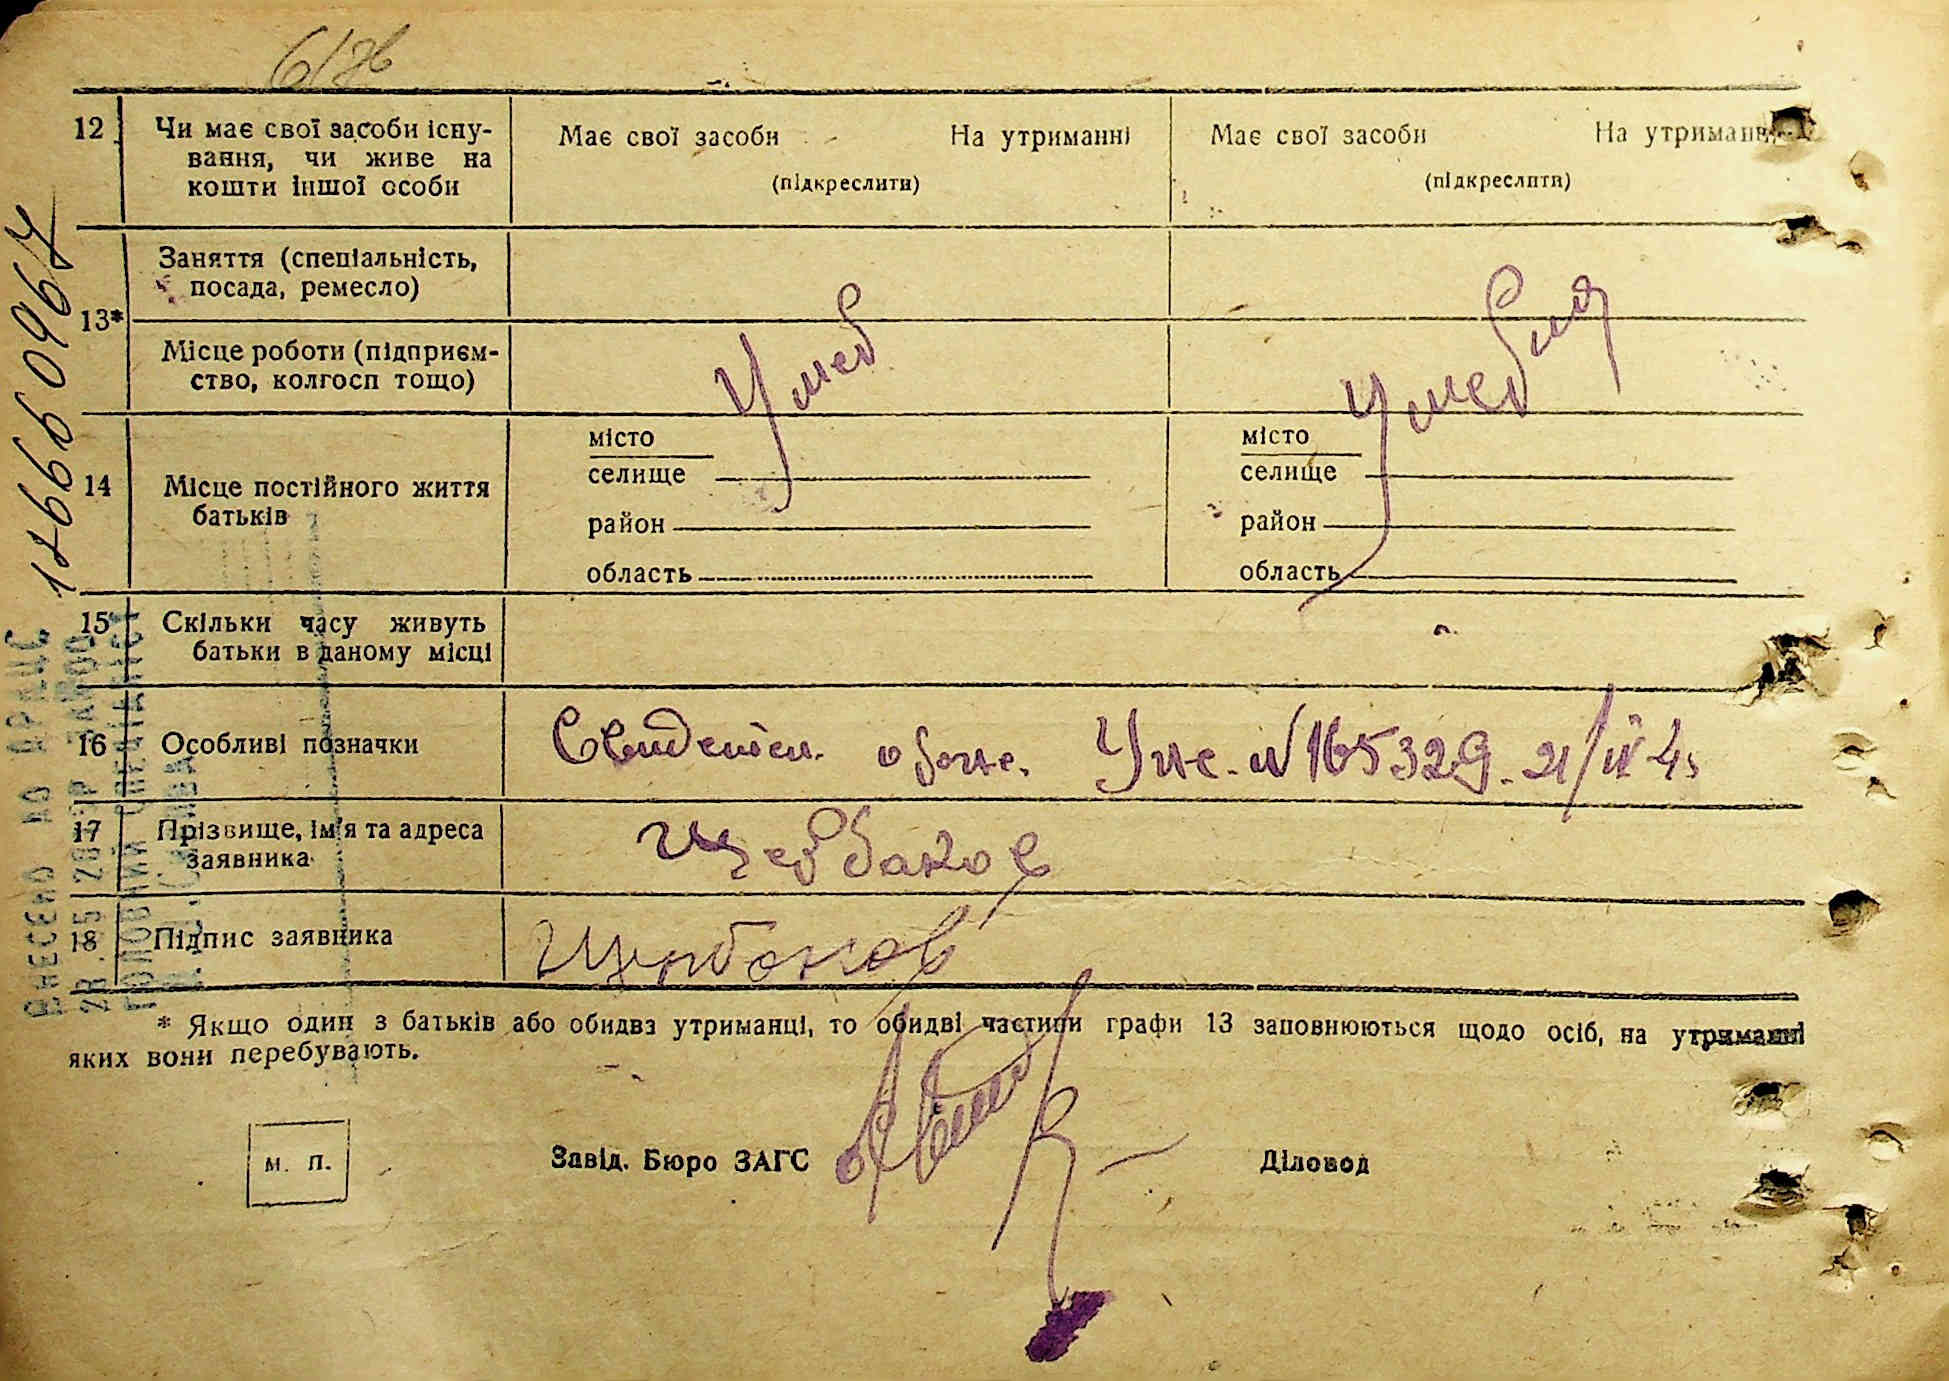 12 Чи має свої засоби існу-
вання, чи живе на
кошти іншої особи
Має свої засоби На утриманні
(підкреслити)
Має свої засоби На утриманні
(підкреслити)
13*
Заняття (спеціальність,
посада, ремесло)
Місце роботи (підприєм-
ство, колгосп тощо)
Умер
Умершая
14 Місце постійного життя
батьків
місто
селище
район
область
місто
селище
район
область
15 Скільки часу живуть
батьки в даному місці
16 Особливі позначки
№ 165329. 21/IV 4
17 Прізвище, ім'я та адреса
заявника
Щербаков
18 Підпис заявника
Щербаков
* Якщо один з батьків або обидва утриманці, то обидві частини графи 13 заповнюються щодо осіб, на утриманні
яких вони перебувають.
М. П.
Завід. Бюро ЗАГС
Діловод
ВНЕСЕНО ДО ДРАЦС